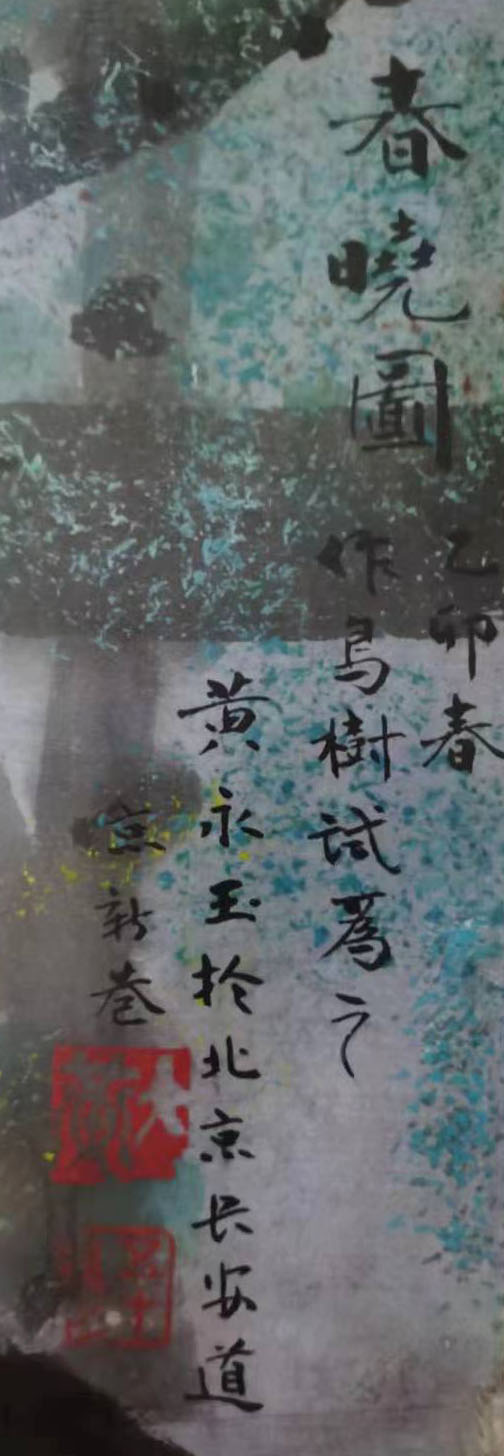 春曉圖
乙卯春
作鳥樹試為之
黄永玉於北京長安道
京新巷